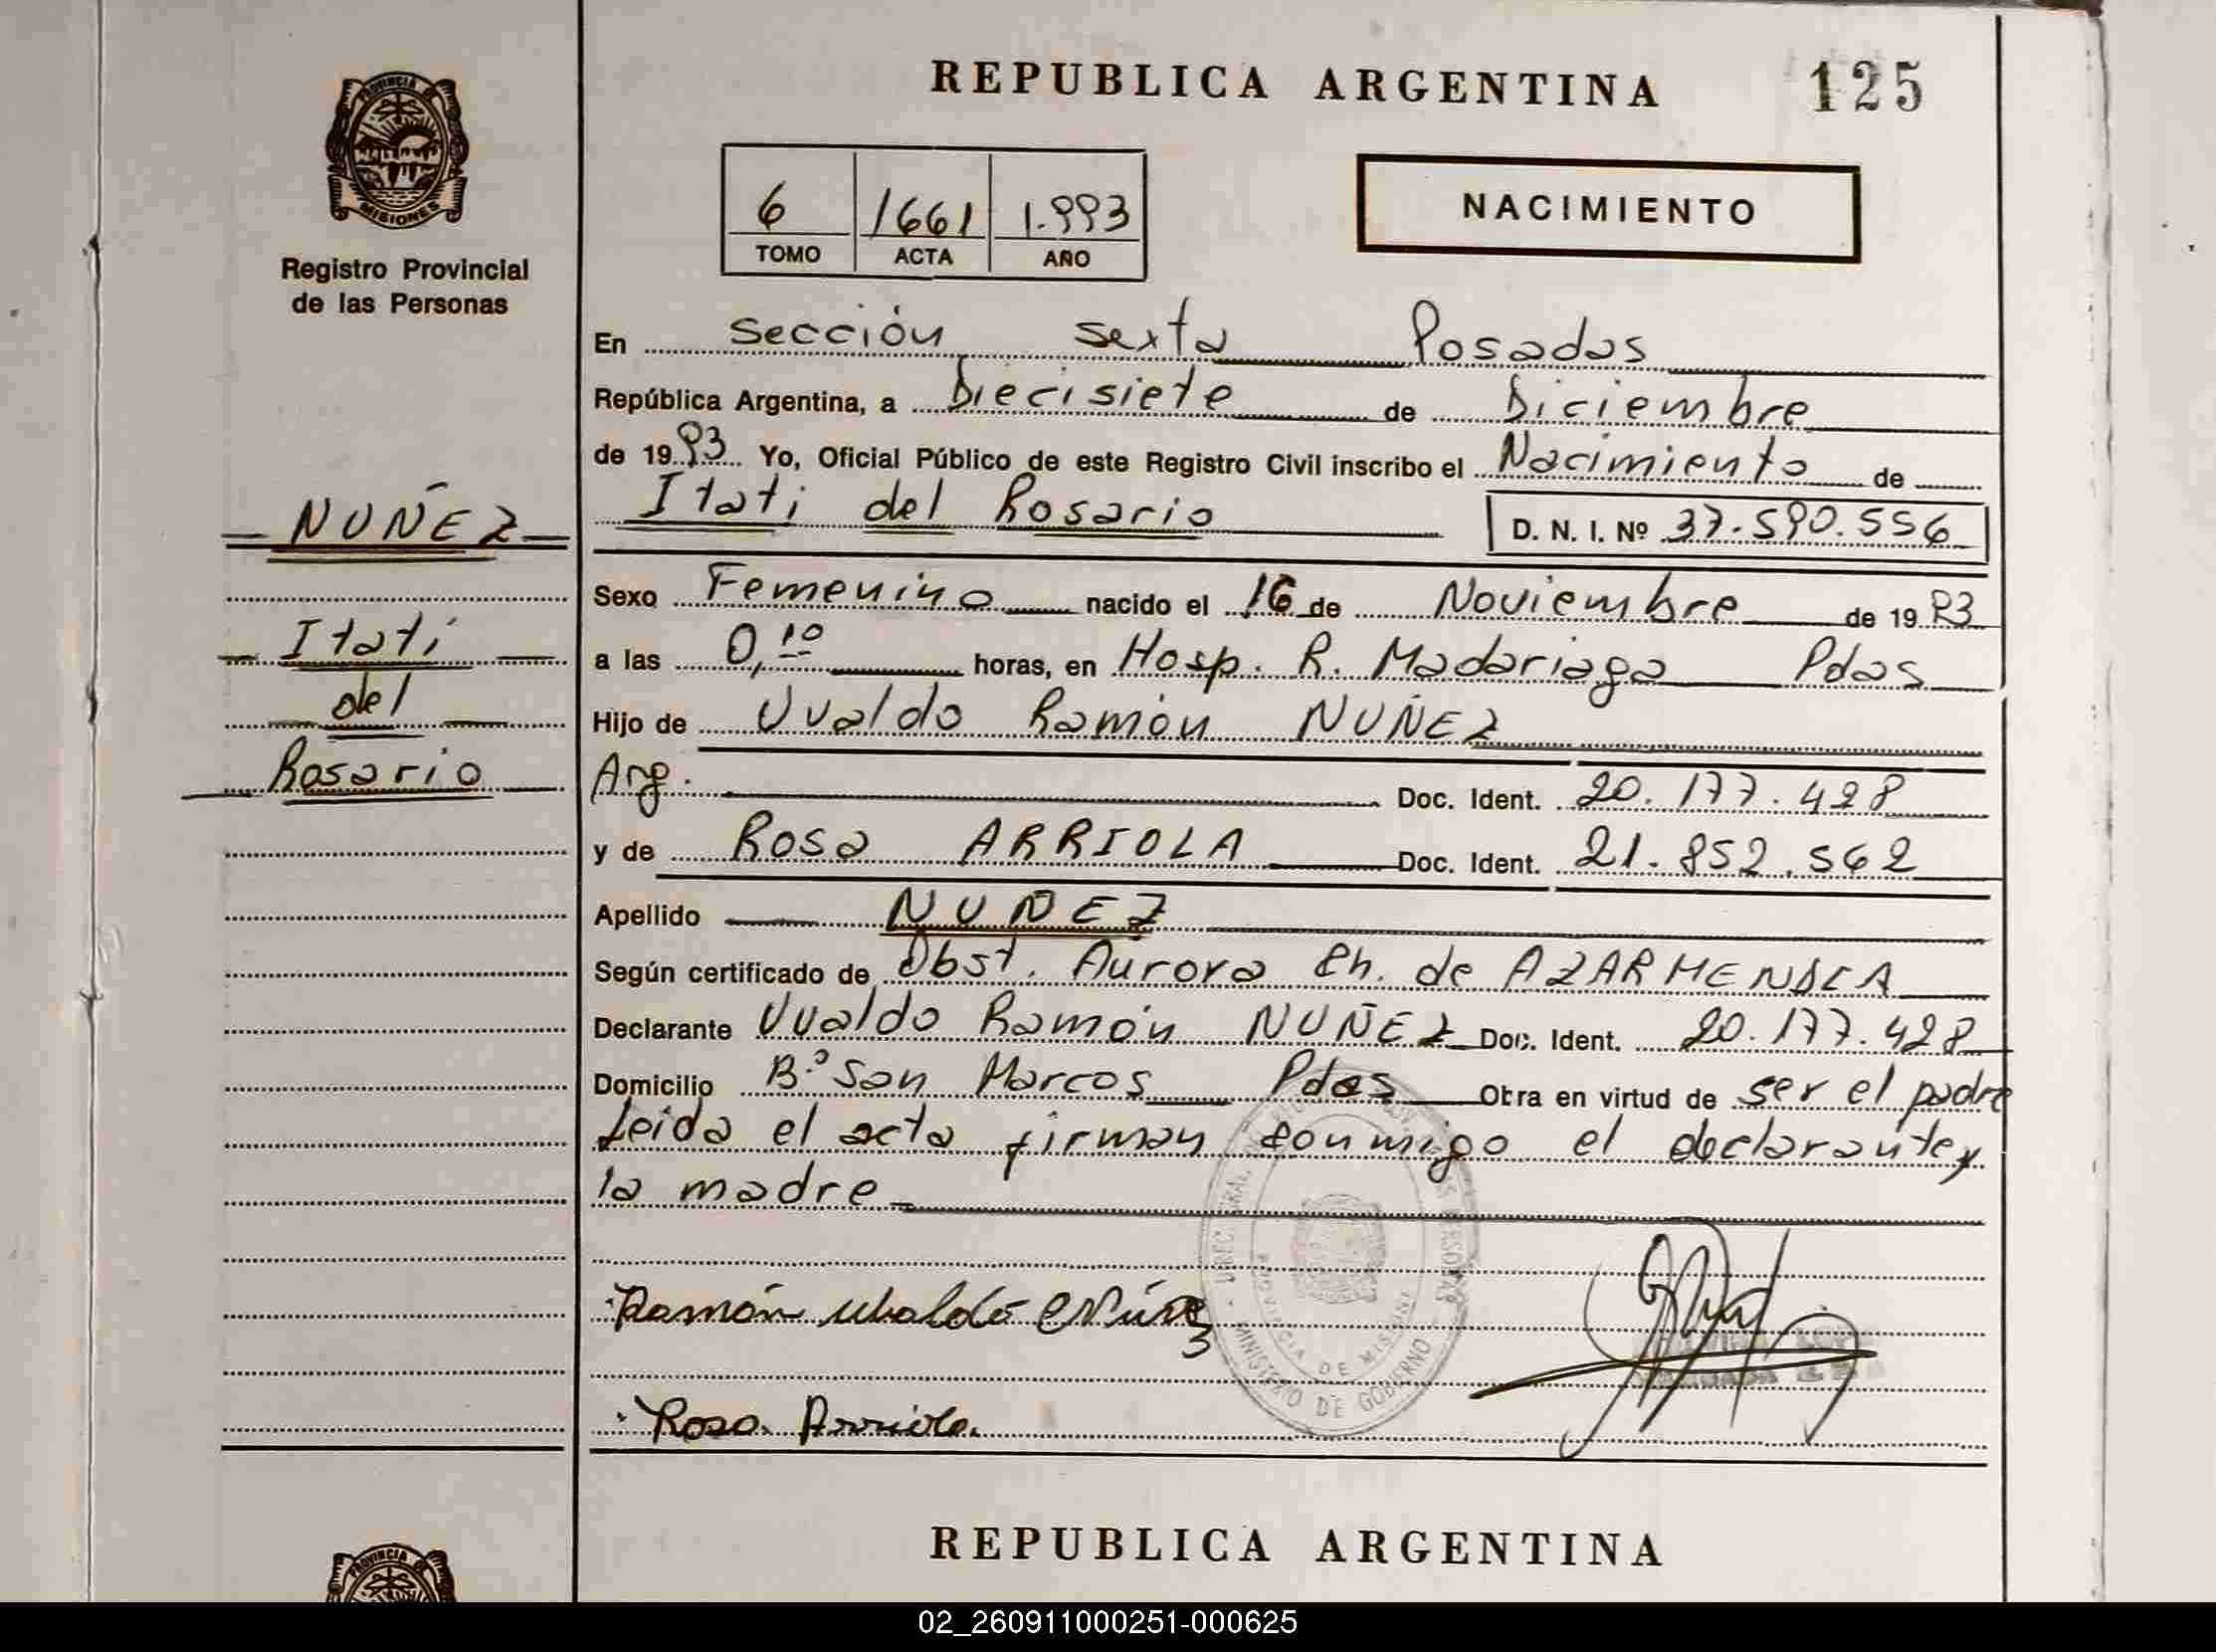 REPUBLICA ARGENTINA
125
PROVINCIA DE
MISIONES
Registro Provincial
de las Personas
6 1661 1.993
TOMO ACTA AÑO
NACIMIENTO
En Sección sexta Posadas
República Argentina, a Diecisiete de Diciembre
de 1993 Yo, Oficial Público de este Registro Civil inscribo el Nacimiento de
Itati del Rosario D. N. I. Nº 37.590.556
NUÑEZ
Itatí
del
Rosario
Sexo Femenino nacido el 16 de Noviembre de 1993
a las 0,10 horas, en Hosp. R. Madariaga Pdas
Hijo de Uvaldo Ramón NUÑEZ
Arg. Doc. Ident. 20.177.428
y de Rosa ARRIOLA Doc. Ident. 21.852.562
Apellido NUÑEZ
Según certificado de Obst. Aurora Ch. de AZARMENDIA
Declarante Uvaldo Ramón NUÑEZ Doc. Ident. 20.177.428
Domicilio Bº San Marcos Pdas Obra en virtud de ser el padre
Leida el acta firman conmigo el declarante y
la madre
Ramón Ubaldo Núñez
Rosa Arriola
PROVINCIA DE MISIONES
MINISTERIO DE GOBIERNO
REPUBLICA ARGENTINA
PROVINCIA DE
02_260911000251-000625